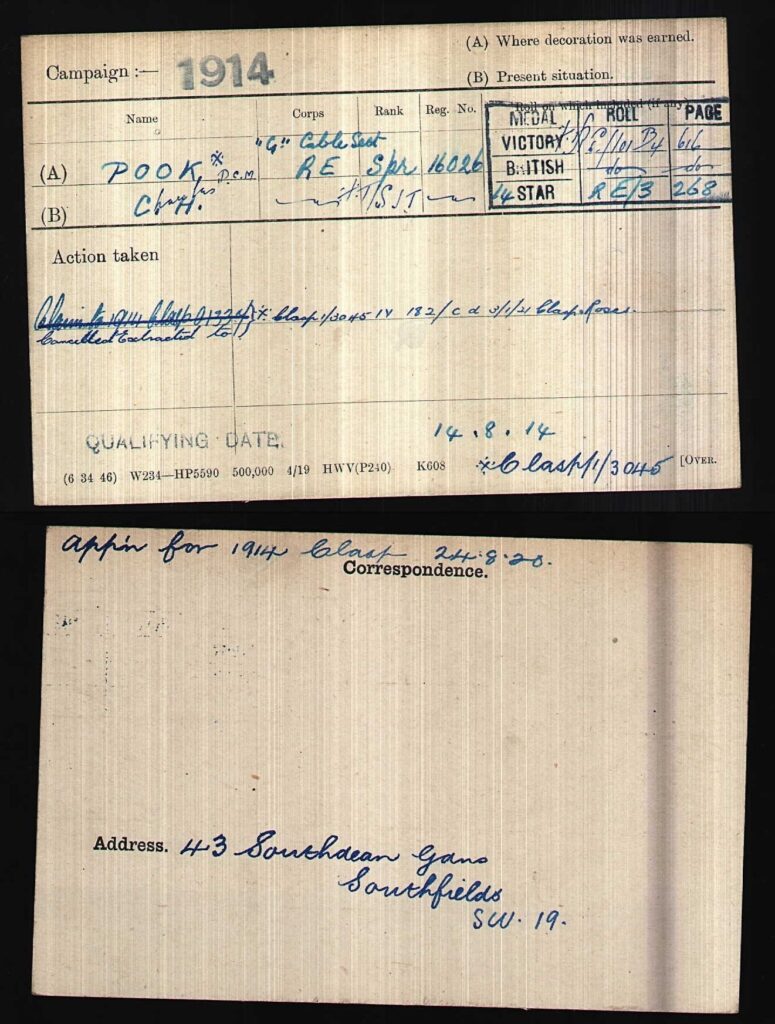 (A) Where decoration was earned.
Campaign :— 1914
(B) Present situation.
Name Corps Rank Reg. No. Roll on which included (if any)
MEDAL ROLL PAGE
"G" Cable Sect
VICTORY RE/101 B4 616
(A) POOK, ※ D.C.M. R E Spr 16026
BRITISH do do
(B) C. H. Charles
14 STAR R E/3 268
Action taken
Claim to 1914 Clasp ※ Clasp 1/3045 IV 182/ c d 3/1/21 Clasp & Roses.
Cancelled Extracted to
QUALIFYING DATE. 14.8.14
(6 34 46) W234—HP5590 500,000 4/19 HWV(P240) K608 ※Clasp/1/3045 [OVER.
App'n for 1914 Clasp 24.8.20.
Correspondence.
Address. 43 Southdean Gdns
Southfields
SW. 19.